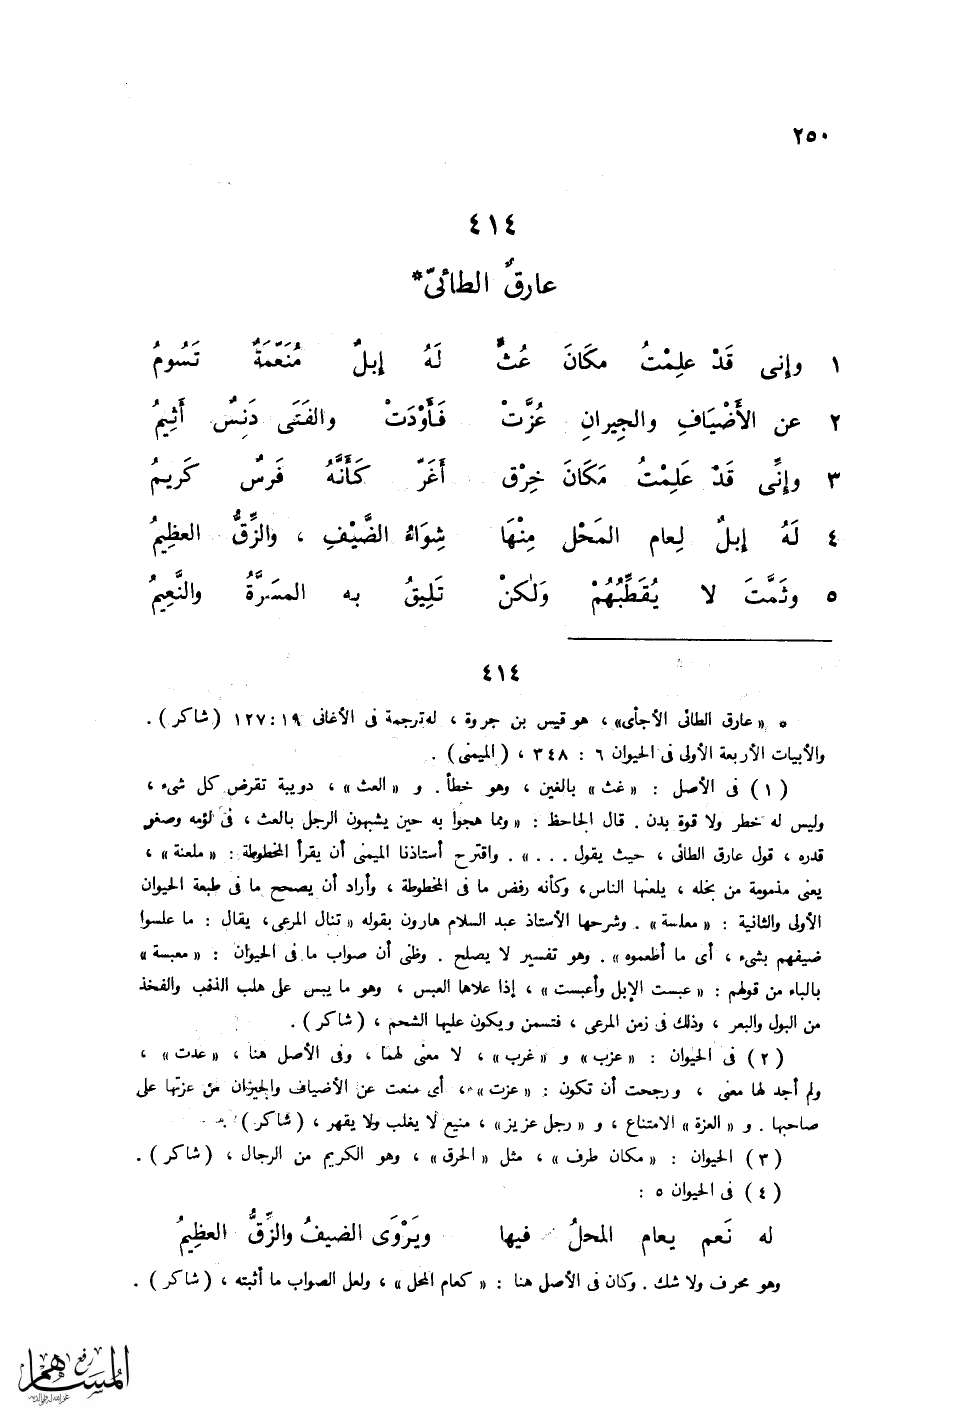 ٢٥٠
٤١٤
عارقٌ الطائىّ*
١ وإنى قَدْ علِمْتُ مكَانَ عُثٍّ لَهُ إبلٌ مُنَعَّمَةٌ تَسُومُ
٢ عن الأَضْيَافِ والجِيرانِ عُزَّتْ فَأَوْدَتْ والفَتَى دَنِسٌ أَثِيمُ
٣ وإنِّى قَدْ عَلِمْتُ مَكَانَ خِرْق أَغَرّ كَأَنَّهُ فَرسٌ كَريمُ
٤ لَهُ إبلٌ لِعام المَحْل مِنْهَا شِوَاءُ الضَّيْفِ ، والزِّقُّ العظِيمُ
٥ وثَمَّتَ لا يُقَطِّبُهُمْ وَلكنْ تَلِيقُ به المسَرَّةُ والنَّعِيمُ
٤١٤
* «عارق الطائى الأجأى» ، هو قيس بن جروة ، له ترجمة فى الأغانى ١٩ : ١٢٧ (شاكر) .
والأبيات الأربعة الأولى فى الحيوان ٦ : ٣٤٨ ، (الميمنى) .
(١) فى الأصل : «غث» بالغين ، وهو خطأ . و «العث» ، دويبة تقرض كل شىء ،
وليس له خطر ولا قوة بدن . قال الجاحظ : «ومما هجوا به حين يشبهون الرجل بالعث ، فى لؤمه وصغر
قدره ، قول عارق الطائى ، حيث يقول . . . » . واقترح أستاذنا الميمنى أن يقرأ المخطوطة : «ملعنة» ،
يعنى مذمومة من بخله ، يلعنها الناس ، وكأنه رفض ما فى المخطوطة ، وأراد أن يصحح ما فى طبعة الحيوان
الأولى والثانية : «معلسة» . وشرحها الأستاذ عبد السلام هارون بقوله «تنال المرعى ، يقال : ما علسوا
ضيفهم بشىء ، أى ما أطعموه» . وهو تفسير لا يصلح . وظنى أن صواب ما فى الحيوان : «معبسة»
بالباء من قولهم : «عبست الإبل وأعبست» ، إذا علاها العبس ، وهو ما يبس على هلب الذنب والفخذ
من البول والبعر ، وذلك فى زمن المرعى ، فتسمن ويكون عليها الشحم ، (شاكر) .
(٢) فى الحيوان : «عزب» و «غرب» ، لا معنى لهما ، وفى الأصل هنا ، «عدت» ،
ولم أجد لها معنى ، ورجحت أن تكون : «عزت» ، أى منعت عن الأضياف والجيران من عزتها على
صاحبها . و «العزة» الامتناع ، و «رجل عزيز» ، منيع لا يغلب ولا يقهر ، (شاكر) .
(٣) الحيوان : «مكان طرف» ، مثل «الخرق» ، وهو الكريم من الرجال ، (شاكر) .
(٤) فى الحيوان ٥ :
له نَعم يعام المحلُ فيها ويَرْوَى الضيفُ والزِّقُّ العظِيمُ
وهو محرف ولا شك . وكان فى الأصل هنا : «كعام المحل» ، ولعل الصواب ما أثبته ، (شاكر) .